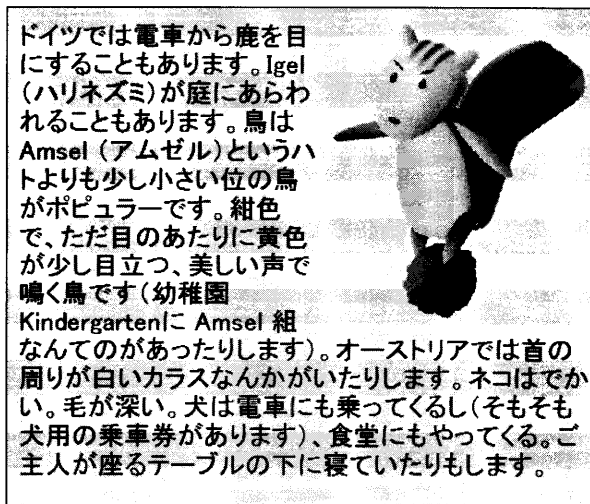 ドイツでは電車から鹿を目
にすることもあります。Igel
(ハリネズミ)が庭にあらわ
れることもあります。鳥は
Amsel (アムゼル)というハ
トよりも少し小さい位の鳥
がポピュラーです。紺色
で、ただ目のあたりに黄色
が少し目立つ、美しい声で
鳴く鳥です(幼稚園
Kindergartenに Amsel 組
なんてのがあったりします)。オーストリアでは首の
周りが白いカラスなんかがいたりします。ネコはでか
い。毛が深い。犬は電車にも乗ってくるし(そもそも
犬用の乗車券があります)、食堂にもやってくる。ご
主人が座るテーブルの下に寝ていたりもします。